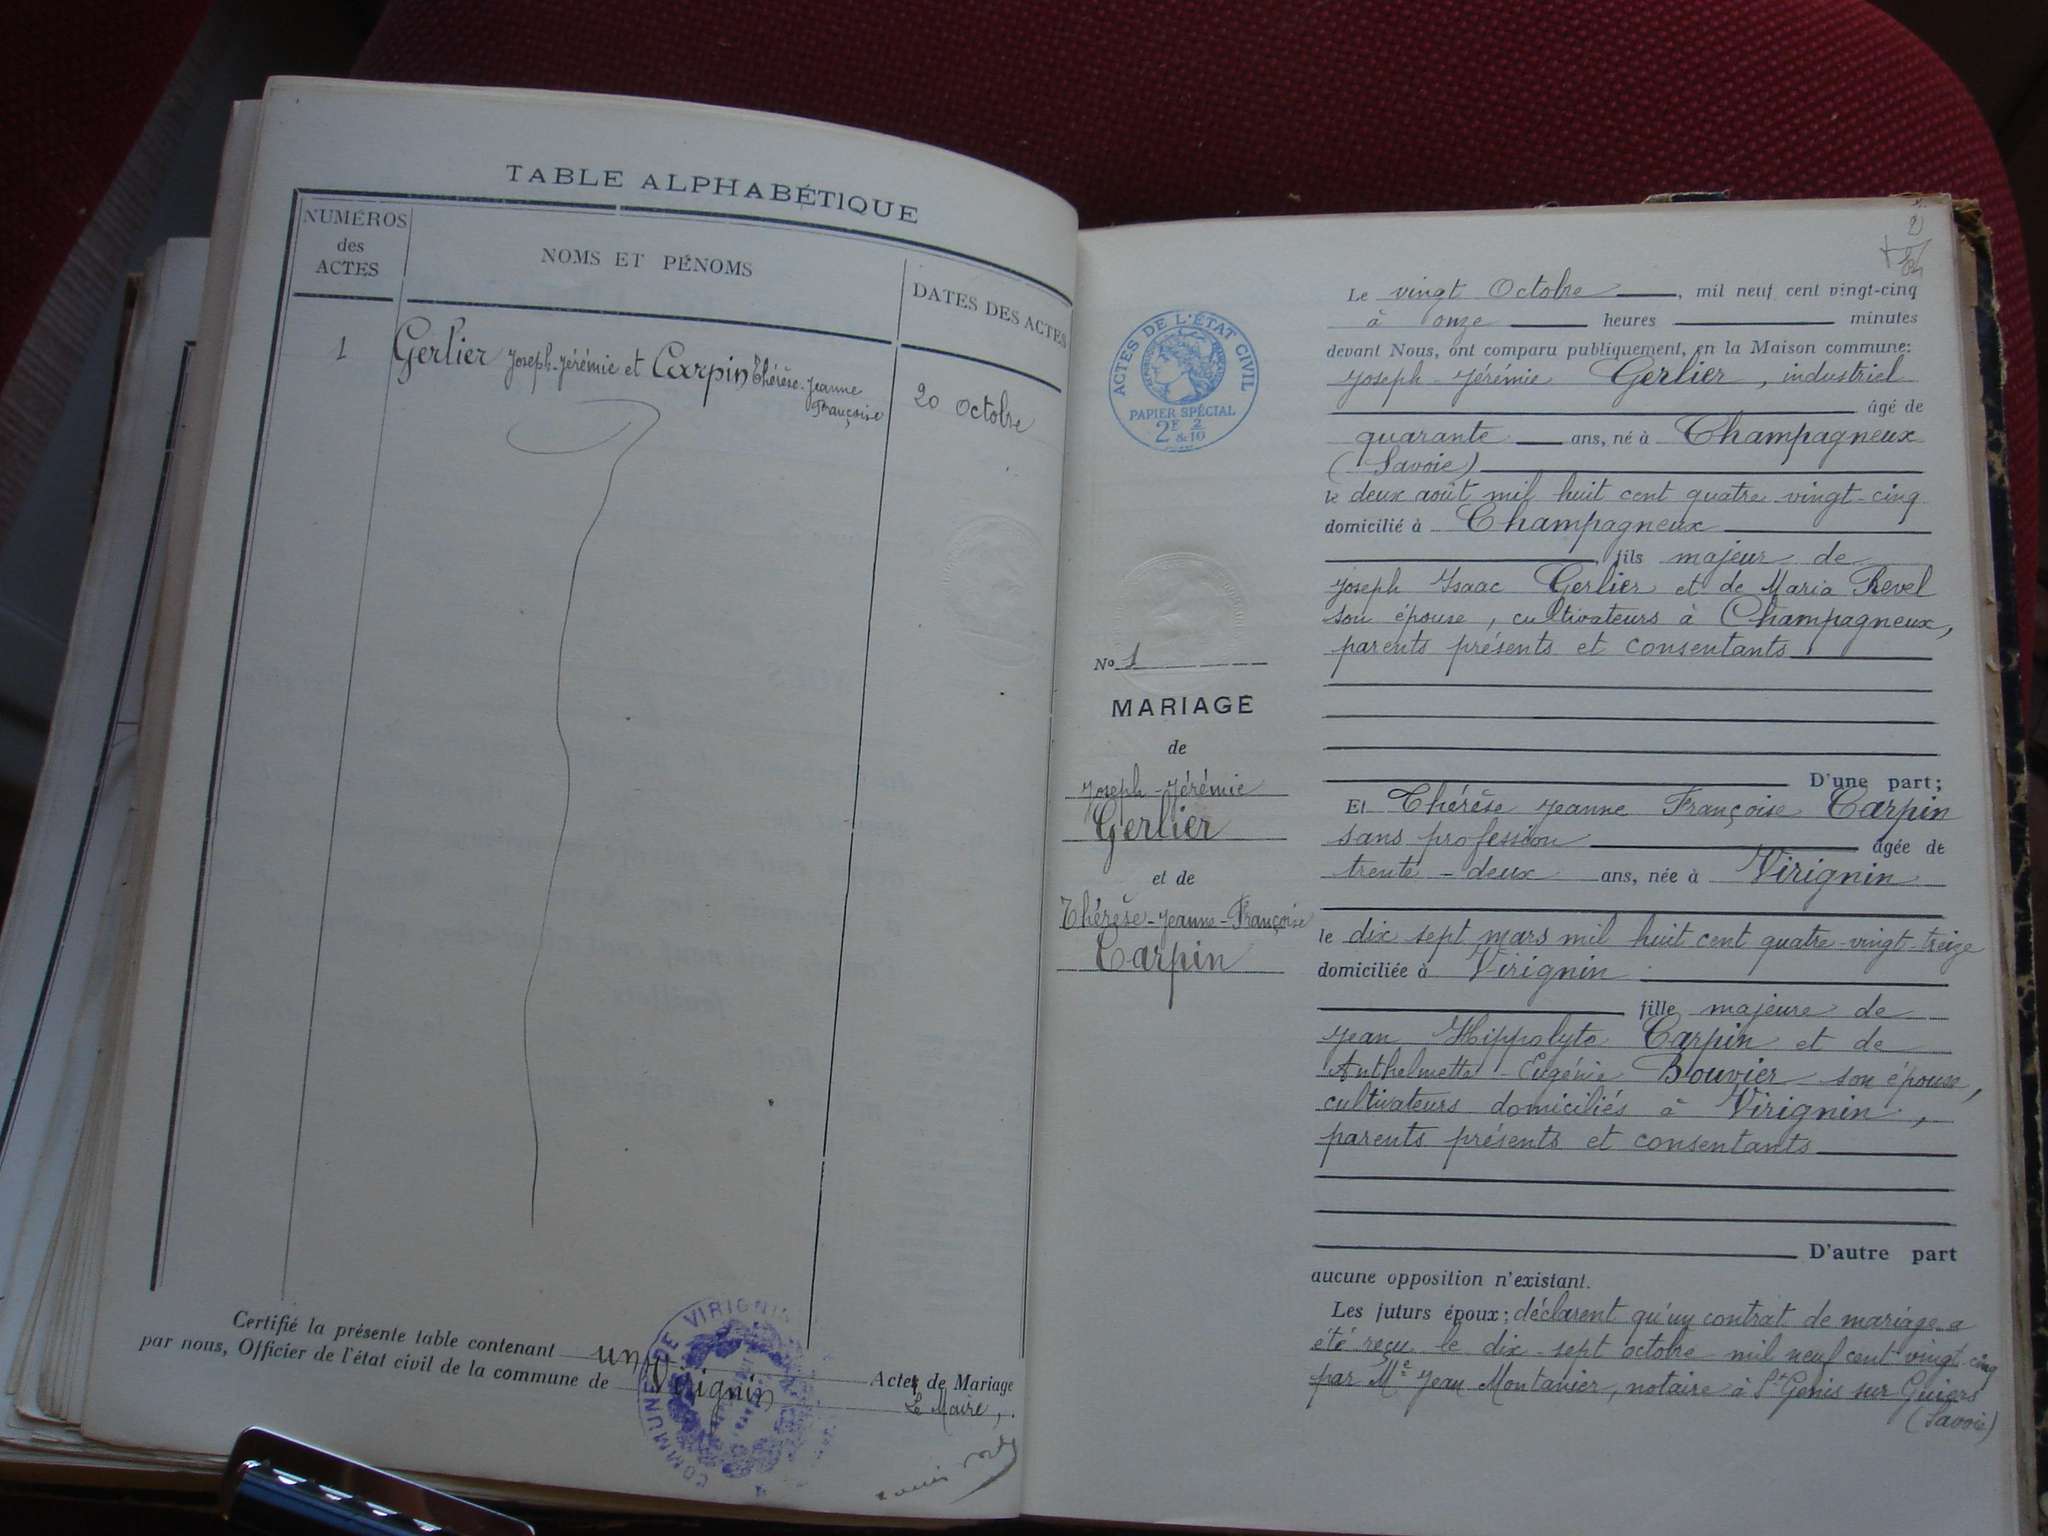 TABLE ALPHABÉTIQUE
NUMÉROS
des
ACTES
NOMS ET PÉNOMS
DATES DES ACTES
1
Gerlier Joseph-Jérémie et Carpin Thérèse-Jeanne
Françoise
20 Octobre
Certifié la présente table contenant un Actes de Mariage
par nous, Officier de l'état civil de la commune de Virignin
Le Maire,
COMMUNE DE VIRIGNIN
ACTES DE L'ÉTAT CIVIL
PAPIER SPÉCIAL
2F 2
&10
No 1
MARIAGE
de
Joseph-Jérémie
Gerlier
et de
Thérèse-Jeanne-Françoise
Carpin
Le vingt Octobre, mil neuf cent vingt-cinq
à onze heures minutes
devant Nous, ont comparu publiquement, en la Maison commune:
Joseph-Jérémie Gerlier, industriel
âgé de
quarante ans, né à Champagneux
(Savoie)
le deux août mil huit cent quatre vingt-cinq
domicilié à Champagneux
fils majeur de
Joseph Isaac Gerlier et de Maria Revel
son épouse, cultivateurs à Champagneux,
parents présents et consentants
D'une part;
Et Thérèse Jeanne Françoise Carpin
sans profession âgée de
trente-deux ans, née à Virignin
le dix sept mars mil huit cent quatre-vingt-treize
domiciliée à Virignin
fille majeure de
Jean Hippolyte Carpin et de
Anthelmette-Eugénie Bouvier son épouse,
cultivateurs domiciliés à Virignin,
parents présents et consentants
D'autre part
aucune opposition n'existant.
Les futurs époux; déclarent qu'un contrat de mariage a
été reçu le dix-sept octobre mil neuf cent vingt-cinq
par Me Jean Montanier, notaire à St Genis sur Guiers
(Savoie)